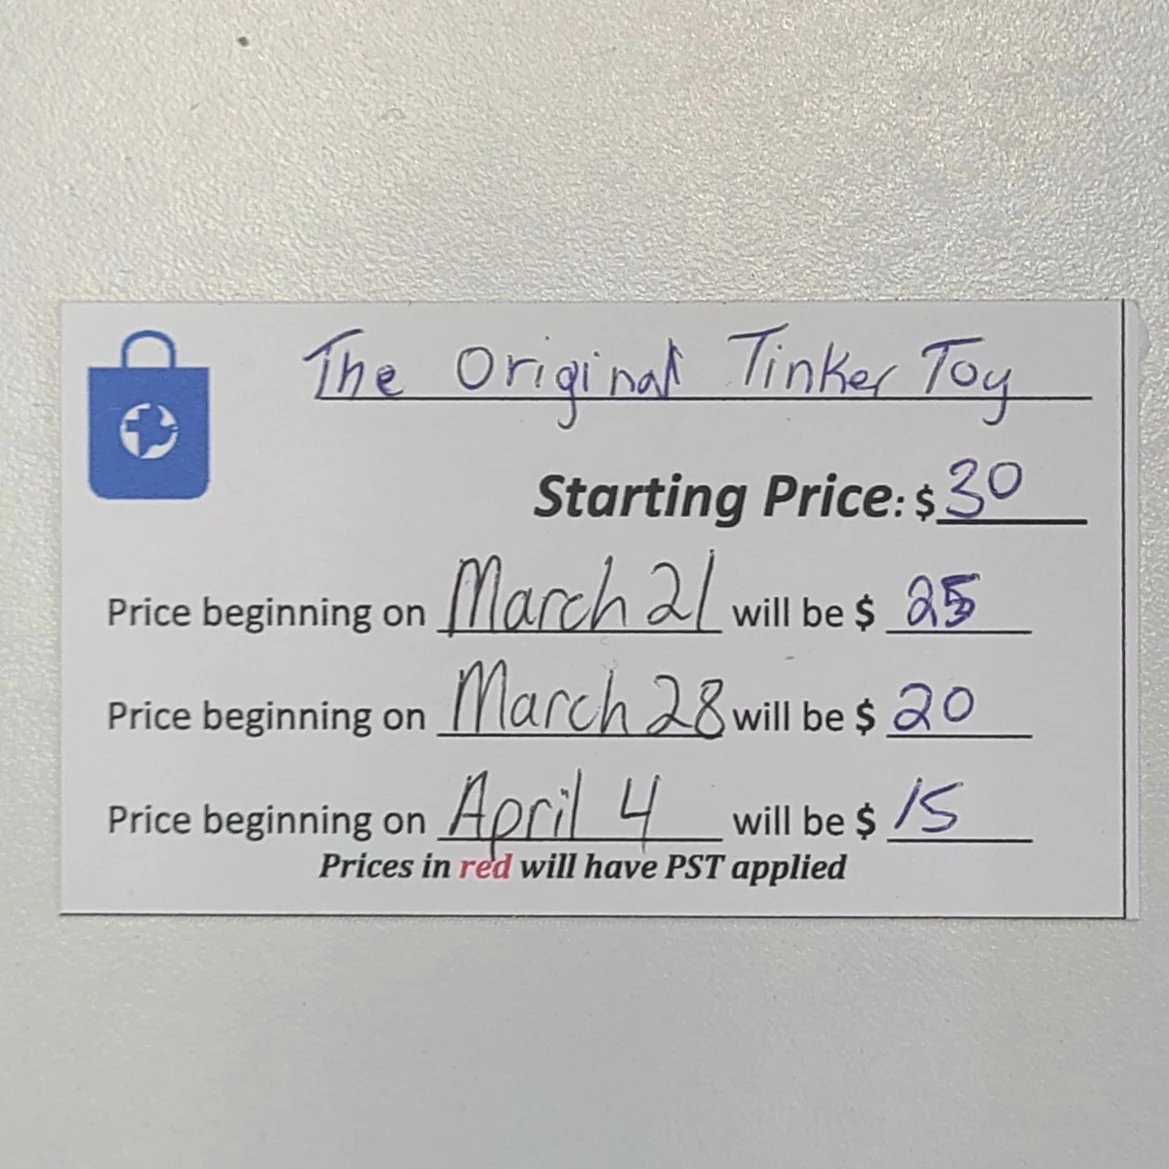 The Original Tinker Toy
Starting Price: $30
Price beginning on March 21 will be $ 25
Price beginning on March 28 will be $ 20
Price beginning on April 4 will be $ 15
Prices in red will have PST applied